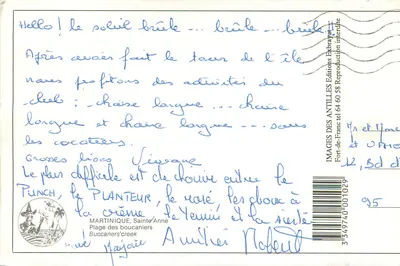 Hello! le soleil brûle ... brûle ... brûle !!
Après avoir fait le tour de l'île
nous profitons des activités du
club : chaise longue ... chaise
longue et chaise longue ... sous
les cocotiers.
Grosses bises
Le plus difficile est de choisir entre le
PUNCH, le PLANTEUR, le volé, les choux à
la crème, le tennis et la sieste
Amitiés
MARTINIQUE, Sainte Anne
Plage des boucaniers
Buccaneri'creek
IMAGES DES ANTILLES Editions Exbrayat
Fort-de-France tel 64 60 58 Reproduction interdite
3549740001029
Mr et
et
12, Bd d
95